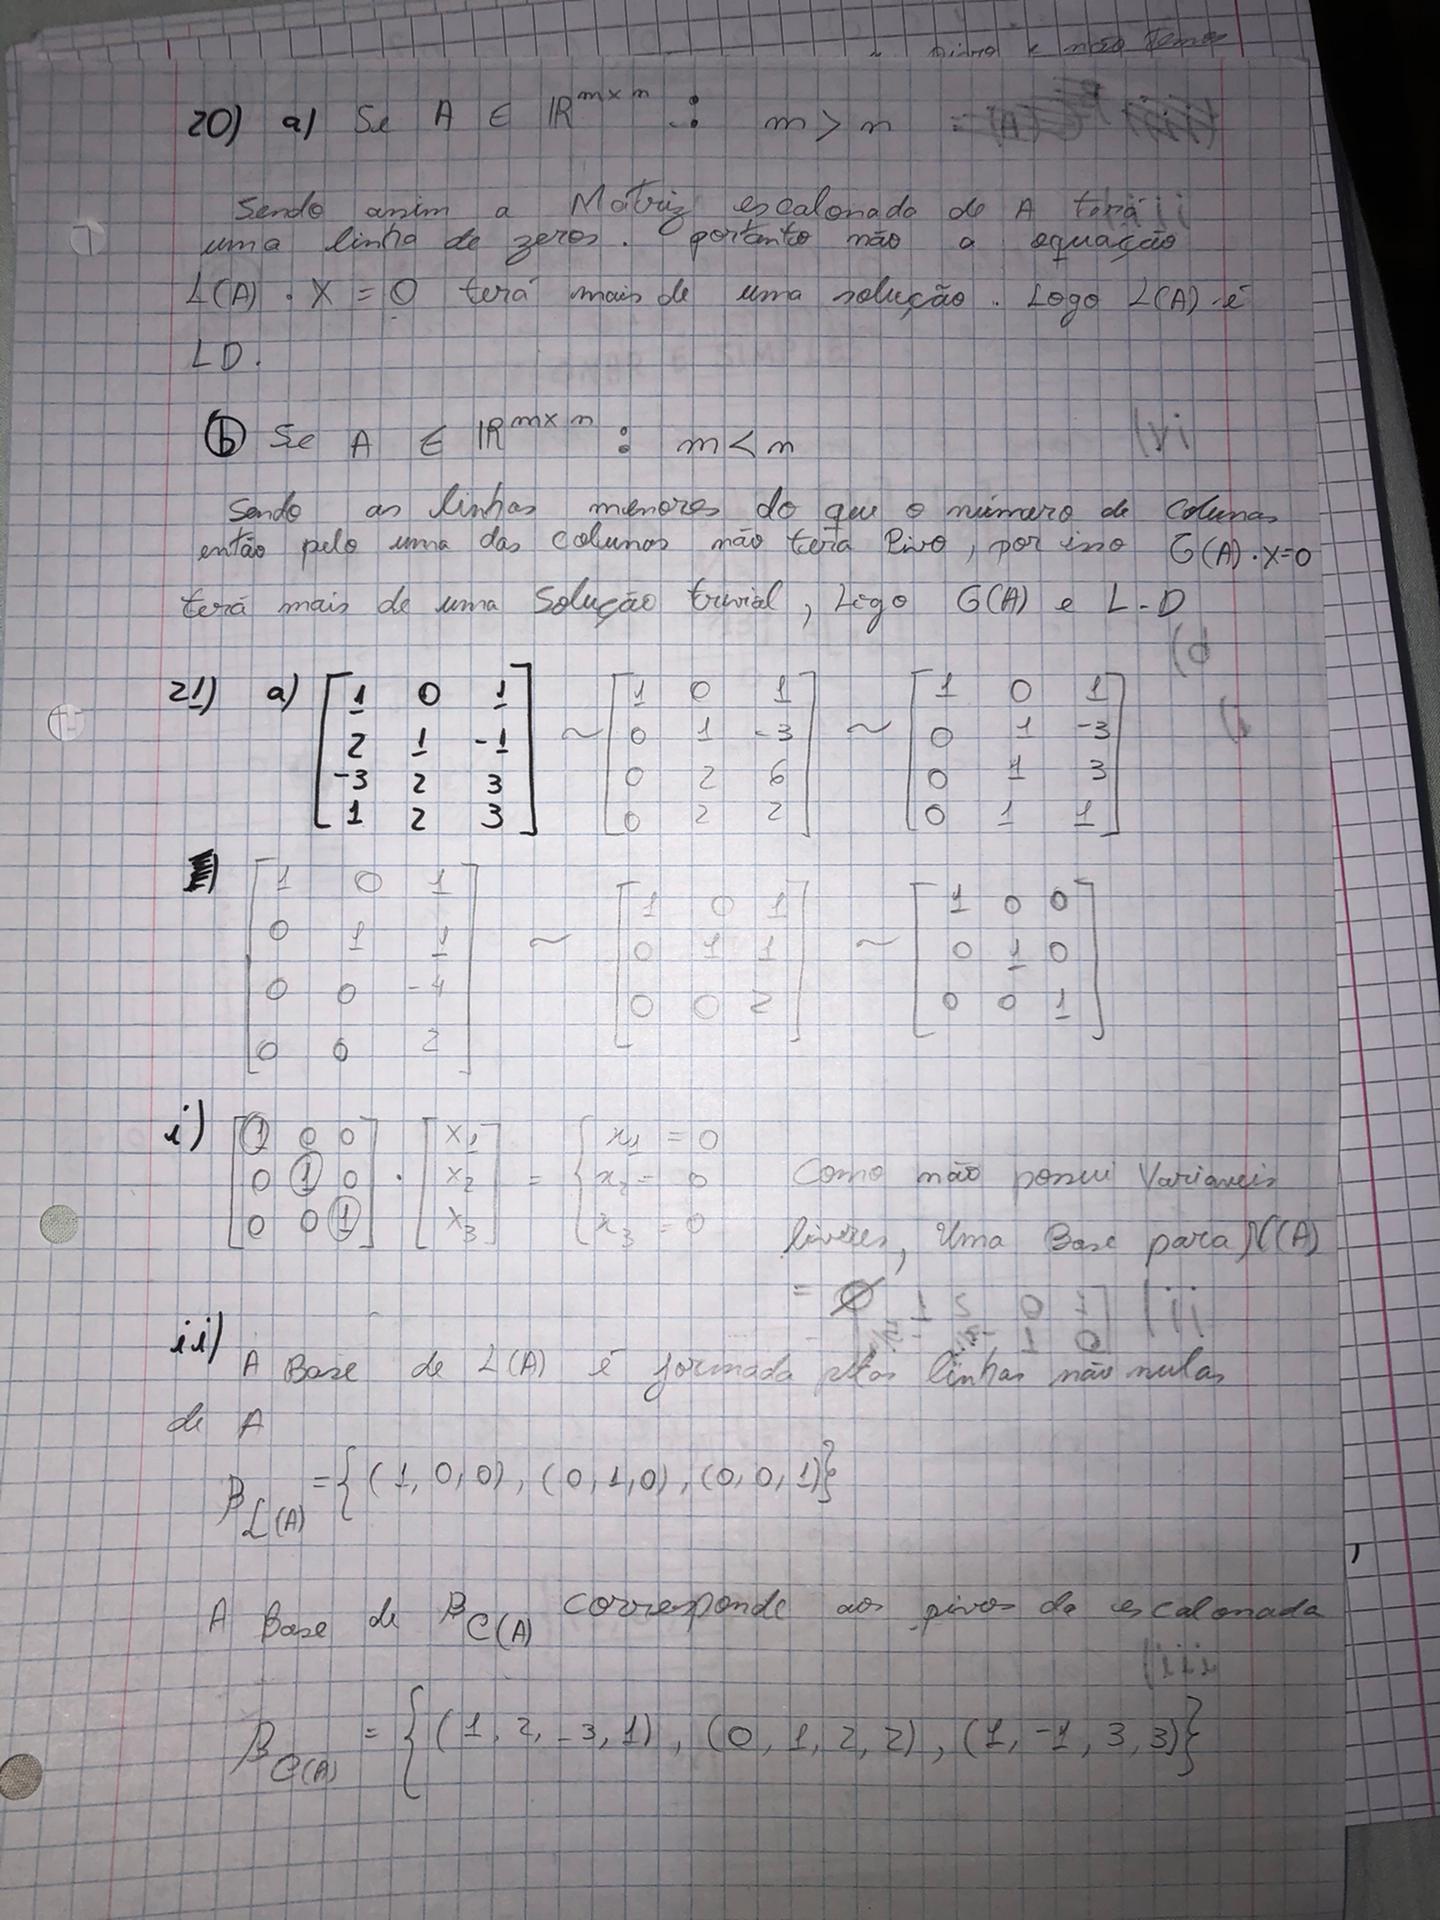 pivo e não temos
20) a) Se A ∈ ℝ^{m×n} : m > n =
Sendo assim a Matriz escalonada de A terá
uma linha de zeros. Portanto não a equação
L(A) . X = 0 terá mais de uma solução. Logo L(A) é
LD.
(b) Se A ∈ ℝ^{m×n} : m < n
Sendo as linhas menores do que o número de colunas
então pelo uma das colunas não terá Pivo, por isso C(A).X=0
terá mais de uma Solução trivial, Logo C(A) e L-D
21) a) [1 0 1; 2 1 -1; -3 2 3; 1 2 3] ~ [1 0 1; 0 1 -3; 0 2 6; 0 2 2] ~ [1 0 1; 0 1 -3; 0 1 3; 0 1 1]
[1 0 1; 0 1 1; 0 0 -4; 0 0 2] ~ [1 0 1; 0 1 1; 0 0 2] ~ [1 0 0; 0 1 0; 0 0 1]
i) [1 0 0; 0 1 0; 0 0 1] . [x1; x2; x3] = { x1 = 0; x2 = 0; x3 = 0
Como não possui Variaveis
livres, Uma Base para N(A)
= ∅
ii)
A Base de L(A) é formada pelas linhas não nulas
de A
β_{L(A)} = {(1, 0, 0), (0, 1, 0), (0, 0, 1)}
A Base de β_{C(A)} corresponde aos pivos da escalonada
β_{C(A)} = {(1, 2, -3, 1), (0, 1, 2, 2), (1, -1, 3, 3)}